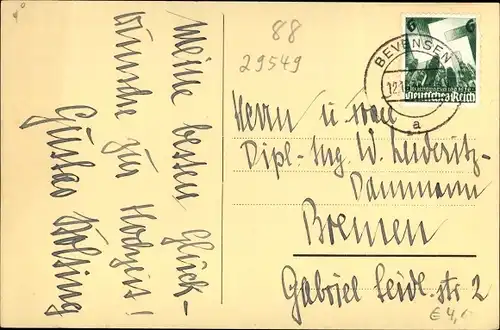 Meine besten Glück-
wünsche zur
Hochzeit!
Gustav
88
29549
6 6
Deutsches Reich
BEVENSEN
12.1
a
Herrn u. Frau
Dipl.-Ing. W. Luderitz-
Dammann
Bremen
Gabriel Seidl. str 2
€ 4,